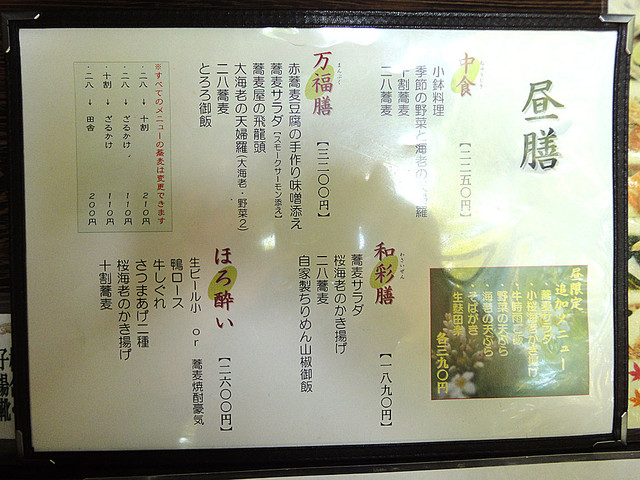 昼膳
中食
【二二五〇円】
小鉢料理
季節の野菜と海老の天婦羅
十割蕎麦
二八蕎麦
まんぷく
万福膳
【三二〇〇円】
赤蕎麦豆腐の手作り味噌添え
蕎麦サラダ【スモークサーモン添え】
蕎麦屋の飛龍頭
大海老の天婦羅(大海老・野菜2)
二八蕎麦
とろろ御飯
※すべてのメニューの蕎麦は変更できます
・二八 → 十割 210円
・二八 → ざるかけ 110円
・十割 → ざるかけ 110円
・二八 → 田舎 200円
昼限定
追加メニュー
・蕎麦サラダ
・小桜海老かき揚げ
・牛時雨煮
・野菜の天ぷら
・海老の天ぷら
・そばがき
・生麩田楽
各三九〇円
わさいぜん
和彩膳
【一八九〇円】
蕎麦サラダ
桜海老のかき揚げ
二八蕎麦
自家製ちりめん山椒御飯
ほろ酔い
【二六〇〇円】
生ビール小 or 蕎麦焼酎豪気
鴨ロース
牛しぐれ
さつまあげ二種
桜海老のかき揚げ
十割蕎麦